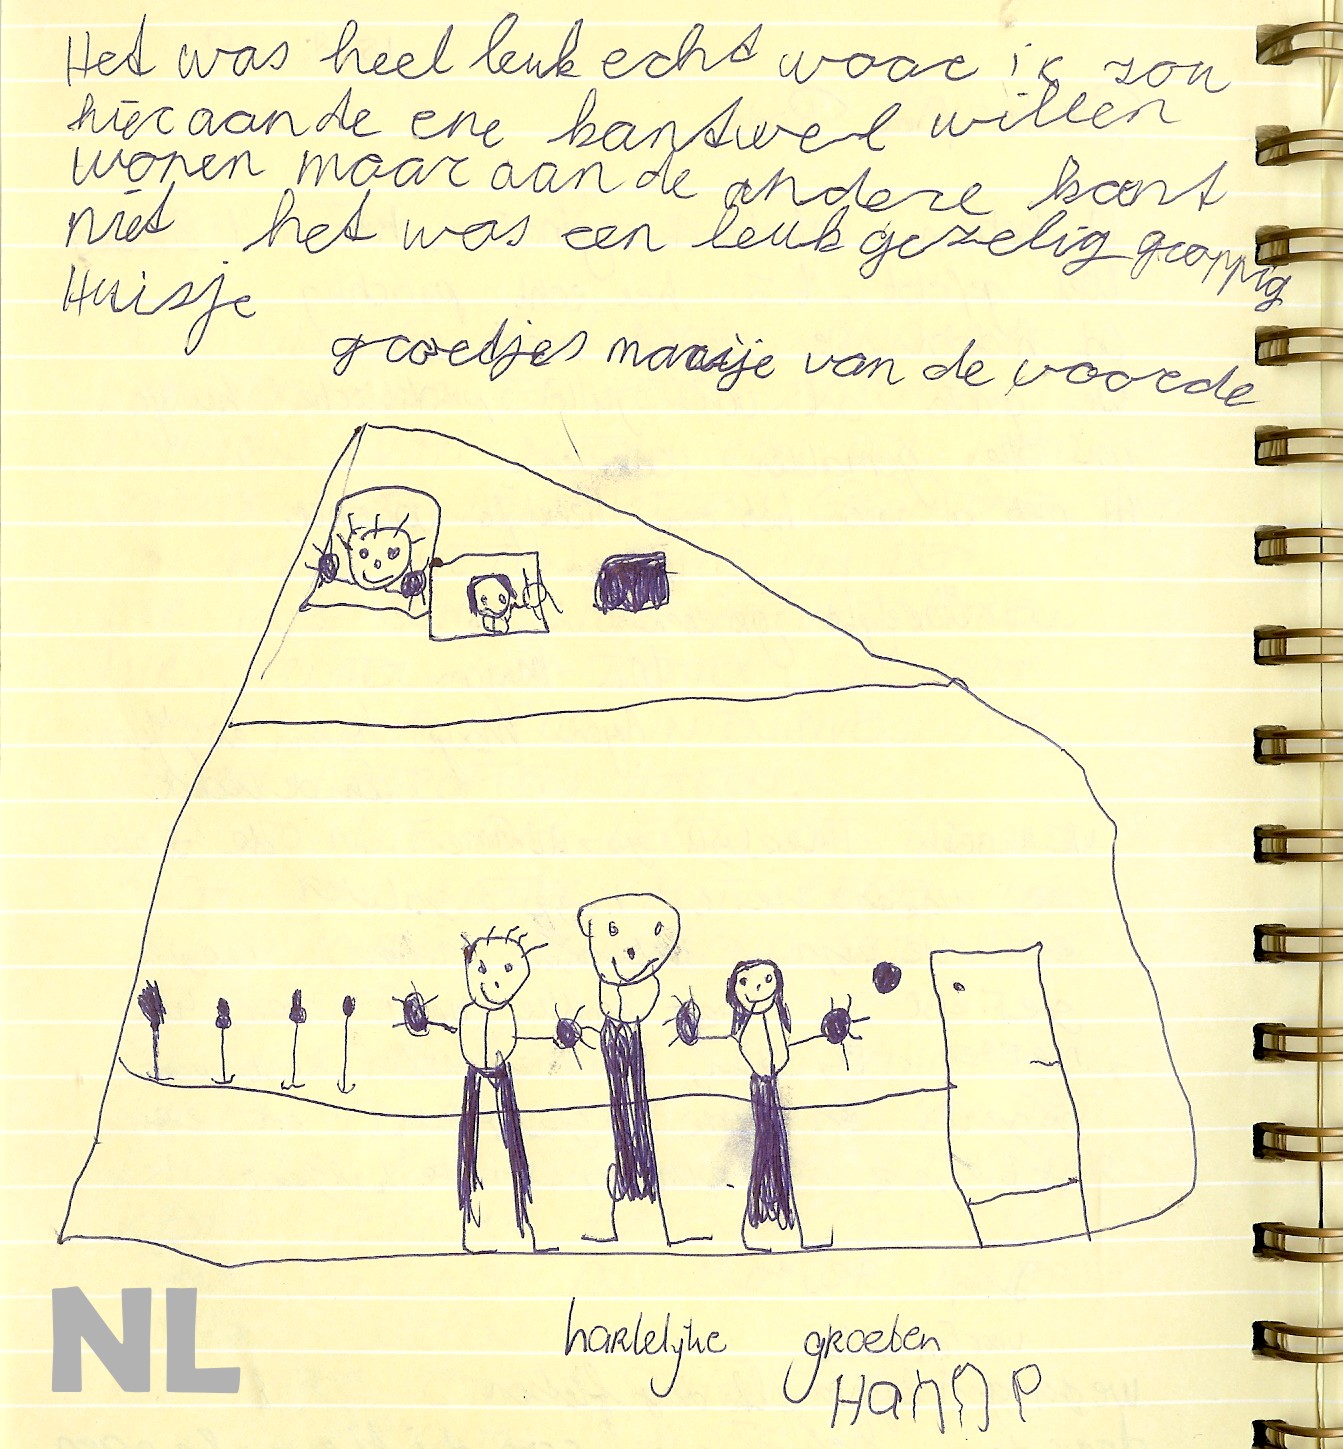 Het was heel leuk echt waar ik zou
hier aan de ene kant wel willen
wonen maar aan de andere kant
niet het was een leuk gezelig grappig
Huisje
groetjes marije van de voorde
NL
hartelijke groeten
Hanne